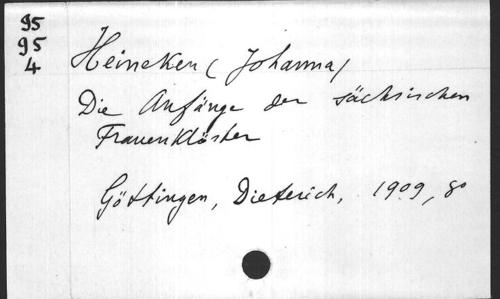 95
95
4
Heineken (Johanna)
Die Anfänge der sächsischen
Frauenklöster
Göttingen, Dieterich, 1909, 8°